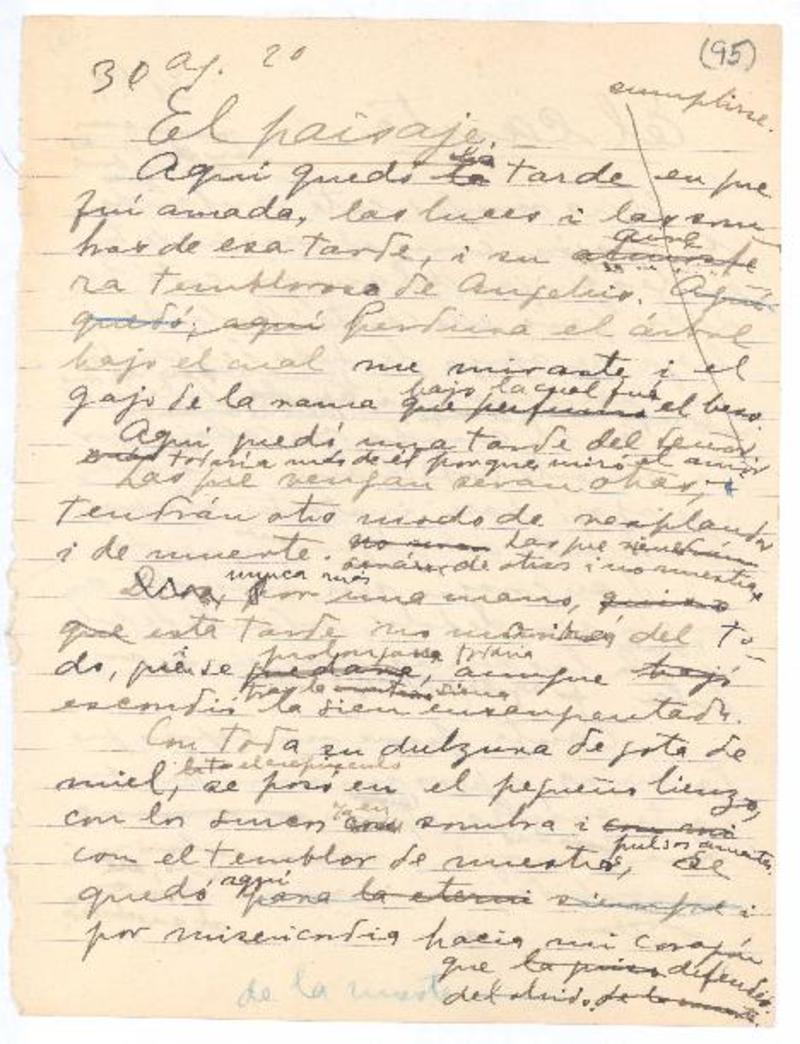 (95)
30 Ag. 20
cumplirse.
El paisaje.
Aquí quedó la tarde en que
fuí amada, las luces i las som-
bras de esa tarde, i su
ra temblorosa de Angelus. Aquí
quedó, aquí perdura el árbol
bajo el cual me miraste i el
bajo la cual fué
gajo de la rama que perfumó el beso.
Aquí quedó una tarde del Señor
todavía más de él porque miró el amor
Las que vengan serán otras,
tendrán otro modo de resplandor
i de muerte. Las que
serán de otros i no nuestras
nunca más
por una mano, quiso
que esta tarde no del to-
prolongase todavía
do, quiso quedase, aunque bajó
tras la sierra
escondió la sien ensangrentada.
Con toda su dulzura de gota de
miel, se posó en el pequeño lienzo,
con los surcos en sombra i con mi
pulsos amantes.
con el temblor de nuestros, se
aquí
quedó para la eterni siempre i
por misericordia hacia mi corazón
que la quiso defender
de la muerte
del olvido, de la muerte.